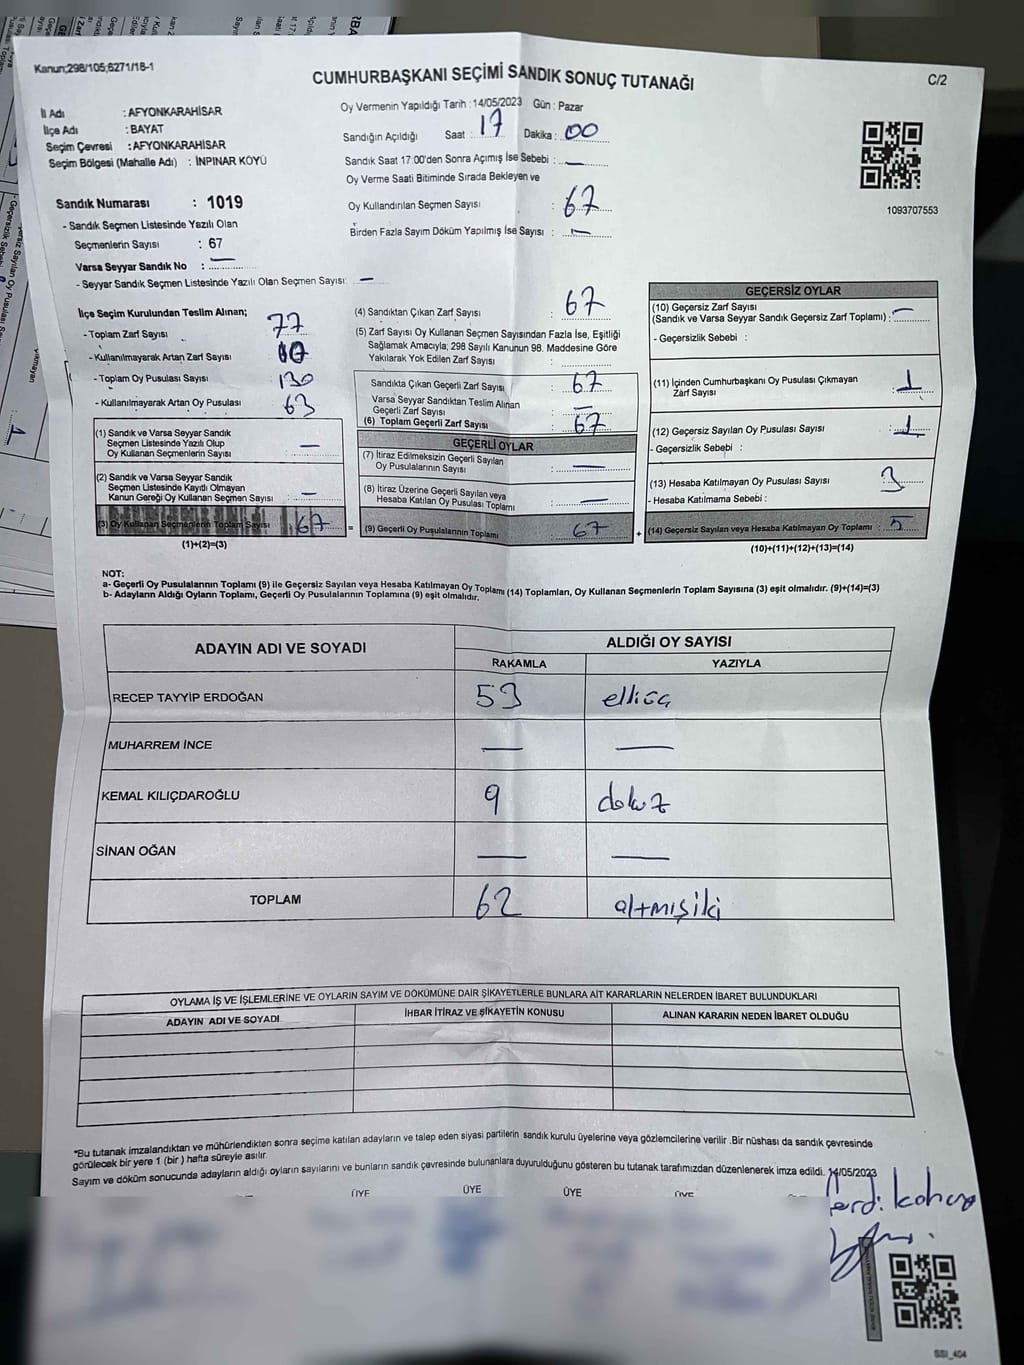 Kanun;298/105;6271/18-1
CUMHURBAŞKANI SEÇİMİ SANDIK SONUÇ TUTANAĞI
C/2
İl Adı : AFYONKARAHİSAR
İlçe Adı : BAYAT
Seçim Çevresi : AFYONKARAHİSAR
Seçim Bölgesi (Mahalle Adı) : İNPINAR KÖYÜ
Oy Vermenin Yapıldığı Tarih : 14/05/2023 Gün : Pazar
Sandığın Açıldığı Saat : 17 Dakika : 00
Sandık Saat 17:00'den Sonra Açımış İse Sebebi : —
Oy Verme Saati Bitiminde Sırada Bekleyen ve
Oy Kullandırılan Seçmen Sayısı : 67
Birden Fazla Sayım Döküm Yapılmış İse Sayısı : —
1093707553
Sandık Numarası : 1019
- Sandık Seçmen Listesinde Yazılı Olan
Seçmenlerin Sayısı : 67
Varsa Seyyar Sandık No : —
- Seyyar Sandık Seçmen Listesinde Yazılı Olan Seçmen Sayısı: —
İlçe Seçim Kurulundan Teslim Alınan;
- Toplam Zarf Sayısı : 77
- Kullanılmayarak Artan Zarf Sayısı : 10
- Toplam Oy Pusulası Sayısı : 130
- Kullanılmayarak Artan Oy Pusulası : 63
(1) Sandık ve Varsa Seyyar Sandık
Seçmen Listesinde Yazılı Olup
Oy Kullanan Seçmenlerin Sayısı : —
(2) Sandık ve Varsa Seyyar Sandık
Seçmen Listesinde Kaydı Olmayan
Kanun Gereği Oy Kullanan Seçmen Sayısı : —
(3) Oy Kullanan Seçmenlerin Toplam Sayısı : 67
(1)+(2)=(3)
(4) Sandıktan Çıkan Zarf Sayısı : 67
(5) Zarf Sayısı Oy Kullanan Seçmen Sayısından Fazla İse, Eşitliği
Sağlamak Amacıyla; 298 Sayılı Kanunun 98. Maddesine Göre
Yakılarak Yok Edilen Zarf Sayısı :
Sandıkta Çıkan Geçerli Zarf Sayısı : 67
Varsa Seyyar Sandıktan Teslim Alınan
Geçerli Zarf Sayısı : —
(6) Toplam Geçerli Zarf Sayısı : 67
GEÇERLİ OYLAR
(7) İtiraz Edilmeksizin Geçerli Sayılan
Oy Pusulalarının Sayısı : —
(8) İtiraz Üzerine Geçerli Sayılan veya
Hesaba Katılan Oy Pusulası Toplamı : —
= (9) Geçerli Oy Pusulalarının Toplamı : 67
GEÇERSİZ OYLAR
(10) Geçersiz Zarf Sayısı
(Sandık ve Varsa Seyyar Sandık Geçersiz Zarf Toplamı) : —
- Geçersizlik Sebebi :
(11) İçinden Cumhurbaşkanı Oy Pusulası Çıkmayan
Zarf Sayısı : 1
(12) Geçersiz Sayılan Oy Pusulası Sayısı : 1
- Geçersizlik Sebebi :
(13) Hesaba Katılmayan Oy Pusulası Sayısı : 3
- Hesaba Katılmama Sebebi :
+ (14) Geçersiz Sayılan veya Hesaba Katılmayan Oy Toplamı : 5
(10)+(11)+(12)+(13)=(14)
NOT:
a- Geçerli Oy Pusulalarının Toplamı (9) ile Geçersiz Sayılan veya Hesaba Katılmayan Oy Toplamı (14) Toplamları, Oy Kullanan Seçmenlerin Toplam Sayısına (3) eşit olmalıdır. (9)+(14)=(3)
b- Adayların Aldığı Oyların Toplamı, Geçerli Oy Pusulalarının Toplamına (9) eşit olmalıdır.
ADAYIN ADI VE SOYADI
ALDIĞI OY SAYISI
RAKAMLA YAZIYLA
RECEP TAYYİP ERDOĞAN 53 elliüç
MUHARREM İNCE — —
KEMAL KILIÇDAROĞLU 9 dokuz
SİNAN OĞAN — —
TOPLAM 62 altmışiki
OYLAMA İŞ VE İŞLEMLERİNE VE OYLARIN SAYIM VE DÖKÜMÜNE DAİR ŞİKAYETLERLE BUNLARA AİT KARARLARIN NELERDEN İBARET BULUNDUKLARI
ADAYIN ADI VE SOYADI İHBAR İTİRAZ VE ŞİKAYETİN KONUSU ALINAN KARARIN NEDEN İBARET OLDUĞU
*Bu tutanak imzalandıktan ve mühürlendikten sonra seçime katılan adayların ve talep eden siyasi partilerin sandık kurulu üyelerine veya gözlemcilerine verilir .Bir nüshası da sandık çevresinde
görülecek bir yere 1 (bir ) hafta süreyle asılır.
Sayım ve döküm sonucunda adayların aldığı oyların sayılarını ve bunların sandık çevresinde bulunanlara duyurulduğunu gösteren bu tutanak tarafımızdan düzenlenerek imza edildi. 14/05/2023
ÜYE ÜYE ÜYE ÜYE
SSI_404